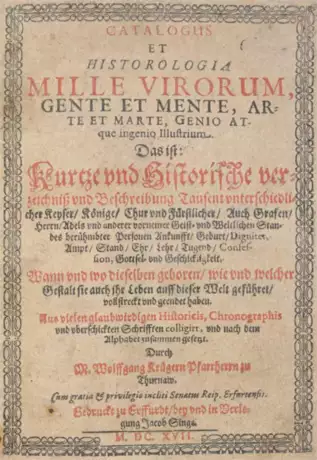 CATALOGUS
ET
HISTOROLOGIA
MILLE VIRORUM,
GENTE ET MENTE, AR-
TE ET MARTE, GENIO AT-
que ingenio Illustrium.
Das ist:
Kurtze vnd Historische ver-
zeichniß vnd Beschreibung Tausent vnterschiedli-
cher Keyser/ Könige/ Chur vnd Fürstlicher/ Auch Grafen/
Herrn/ Adels vnd anderer vornemer Geist- vnd Weltlichen Stan-
des berühmbter Personen Ankunfft/ Geburt/ Digniter,
Ampt/ Stand/ Ehr/ Lehr/ Tugend/ Confes-
sion, Gottsel- vnd Geschickligkeit.
Wann vnd wo dieselben geboren/ wie vnd welcher
Gestalt sie auch ihr Leben auff dieser Welt geführet/
vollstreckt vnd geendet haben.
Aus vielen glaubwirdigen Historicis, Chronographis
vnd vberschickten Schrifften colligirt, vnd nach dem
Alphabet zusammen gesetzt.
Durch
M. Wolffgang Krügern Pfarrherrn zu
Thurnaw.
Cum gratia & privilegio incliti Senatus Reip. Erfurtensis.
Gedruckt zu Erffurdt/ bey vnd in Verle-
gung Jacob Singe.
M. DC. XVII.